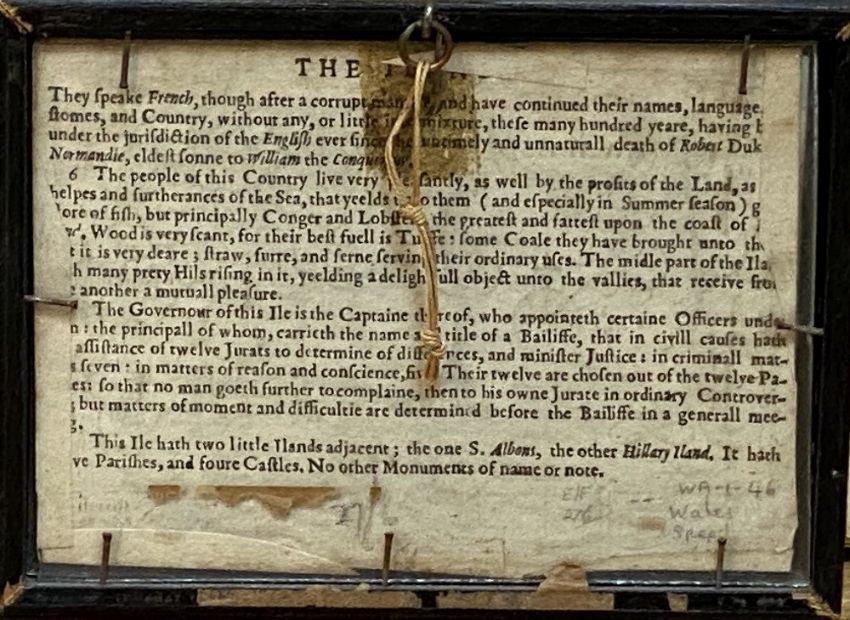 THE
They ſpeake French, though after a corrupt and have continued their names, language,
ſtomes, and Country, without any, or little mixture, theſe many hundred yeare, having
under the juriſdiction of the Engliſh ever ſince untimely and unnaturall death of Robert Duk
Normandie, eldeſt ſonne to William the Conquerour.
6 The people of this Country live very pleaſantly, as well by the profits of the Land, as
helpes and furtherances of the Sea, that yeelds to them (and eſpecially in Summer ſeaſon) g
ore of fiſh, but principally Conger and Lobſters, the greateſt and fatteſt upon the coaſt of
Wood is very ſcant, for their beſt fuell is Turffe: ſome Coale they have brought unto th
t it is very deare; ſtraw, furre, and ferne ſerving their ordinary uſes. The midle part of the Ila
h many prety Hils riſing in it, yeelding a delightfull object unto the vallies, that receive fro
another a mutuall pleaſure.
The Governour of this Ile is the Captaine thereof, who appointeth certaine Officers under
n: the principall of whom, carrieth the name and title of a Bailiffe, that in civill cauſes hath
aſſiſtance of twelve Jurats to determine of differences, and miniſter Juſtice: in criminall mat-
s ſeven: in matters of reaſon and conſcience, Their twelve are choſen out of the twelve Pa-
es: ſo that no man goeth further to complaine, then to his owne Jurate in ordinary Controver-
; but matters of moment and difficultie are determined before the Bailiffe in a generall mee-
g.
This Ile hath two little Ilands adjacent; the one S. Albons, the other Hillary Iland. It hath
ve Pariſhes, and foure Caſtles. No other Monuments of name or note.
WA-1-46
Wales
Speed